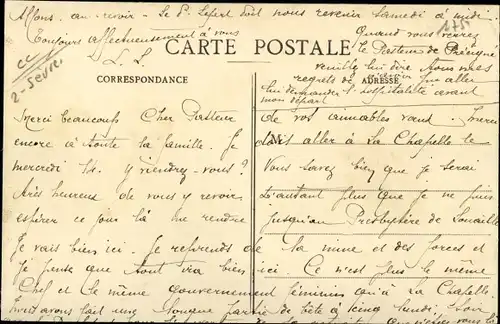 Allons, au revoir - Le P. Lefort doit nous revenir Samedi à midi
Toujours affectueusement à vous
Quand vous verrez
le Pasteur de
CARTE POSTALE
veuillez lui dire tous mes
regrets de pu aller
CORRESPONDANCE
ADRESSE
lui demander l'hospitalité avant
mon départ
2-Sevres
Cher Pasteur
Merci beaucoup de vos aimables vœux
encore à toute la famille. Je dois aller à La Chapelle le
M
mercredi 14. Y viendrez-vous? Vous savez bien que je serai
très heureux de vous y revoir d'autant plus que je ne puis
espérer ce jour là me rendre jusqu'au Presbytère de
Je vais bien ici. Je reprends de la mine et des forces et
je pense que tout ira bien ici. Ce n'est plus le même
Chef et le même gouvernement féminin qu'à La Chapelle
avons fait une longue partie de bête à cinq lundi soir